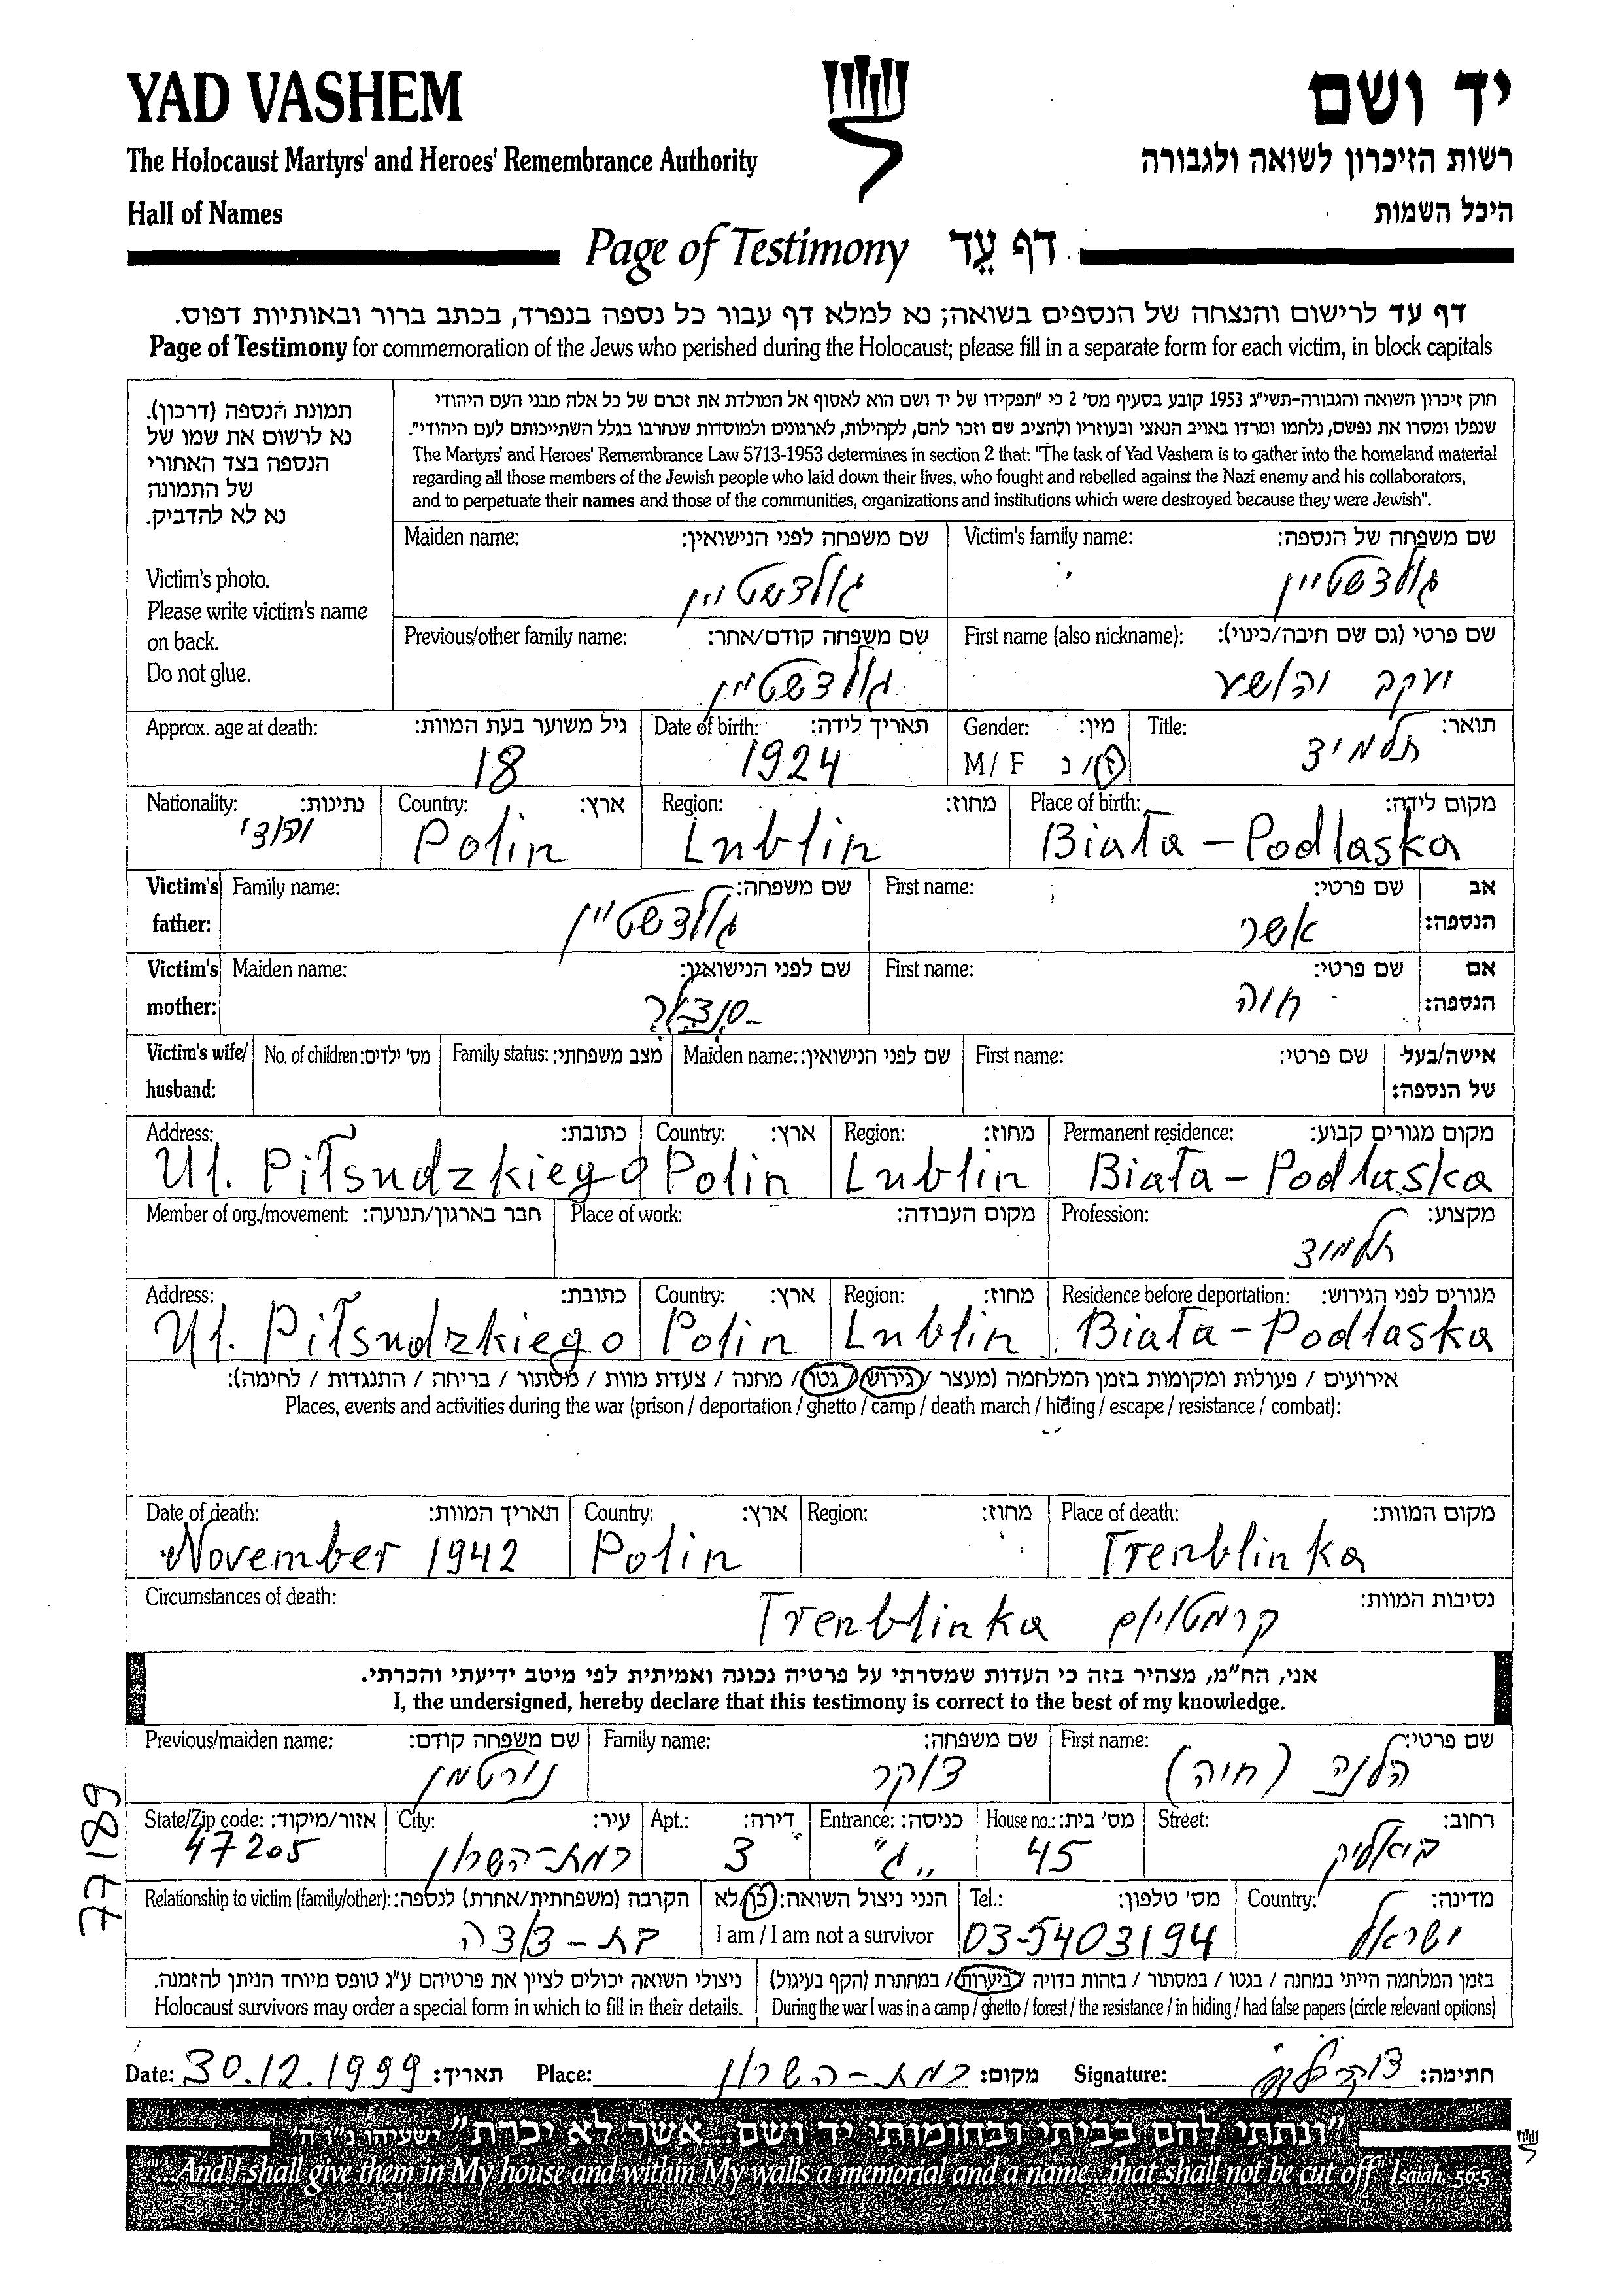 YAD VASHEM
יד ושם
The Holocaust Martyrs' and Heroes' Remembrance Authority
רשות הזיכרון לשואה ולגבורה
Hall of Names
היכל השמות
Page of Testimony דף עֵד
דף עד לרישום והנצחה של הנספים בשואה; נא למלא דף עבור כל נספה בנפרד, בכתב ברור ובאותיות דפוס.
Page of Testimony for commemoration of the Jews who perished during the Holocaust; please fill in a separate form for each victim, in block capitals
תמונת הנספה (דרכון).
נא לרשום את שמו של
הנספה בצד האחורי
של התמונה
נא לא להדביק.
Victim's photo.
Please write victim's name
on back.
Do not glue.
חוק זיכרון השואה והגבורה-תשי"ג 1953 קובע בסעיף מס' 2 כי "תפקידו של יד ושם הוא לאסוף אל המולדת את זכרם של כל אלה מבני העם היהודי
שנפלו ומסרו את נפשם, נלחמו ומרדו באויב הנאצי ובעוזריו ולהציב שם וזכר להם, לקהילות, לארגונים ולמוסדות שנחרבו בגלל השתייכותם לעם היהודי".
The Martyrs' and Heroes' Remembrance Law 5713-1953 determines in section 2 that: "The task of Yad Vashem is to gather into the homeland material
regarding all those members of the Jewish people who laid down their lives, who fought and rebelled against the Nazi enemy and his collaborators,
and to perpetuate their names and those of the communities, organizations and institutions which were destroyed because they were Jewish".
Victim's family name: שם משפחה של הנספה:
גולדשטיין
Maiden name: שם משפחה לפני הנישואין:
גולדשטיין
First name (also nickname): שם פרטי (גם שם חיבה/כינוי):
יעקב יהושע
Previous/other family name: שם משפחה קודם/אחר:
גולדשטיין
Title: תואר:
תלמיד
Gender: מין:
M / F ז / נ
Date of birth: תאריך לידה:
1924
Approx. age at death: גיל משוער בעת המוות:
18
Place of birth: מקום לידה:
Biała-Podlaska
Region: מחוז:
Lublin
Country: ארץ:
Polin
Nationality: נתינות:
יהודי
Victim's father: אב הנספה:
First name: שם פרטי:
אשר
Family name: שם משפחה:
גולדשטיין
Victim's mother: אם הנספה:
First name: שם פרטי:
חוה
Maiden name: שם לפני הנישואין:
Victim's wife/ husband: אישה/בעל של הנספה:
First name: שם פרטי:
Maiden name: שם לפני הנישואין:
Family status: מצב משפחתי:
No. of children: מס' ילדים:
Permanent residence: מקום מגורים קבוע:
Biała-Podlaska
Region: מחוז:
Lublin
Country: ארץ:
Polin
Address: כתובת:
Ul. Piłsudzkiego
Profession: מקצוע:
תלמיד
Place of work: מקום העבודה:
Member of org./movement: חבר בארגון/תנועה:
Residence before deportation: מגורים לפני הגירוש:
Biała-Podlaska
Region: מחוז:
Lublin
Country: ארץ:
Polin
Address: כתובת:
Ul. Piłsudzkiego
אירועים / פעולות ומקומות בזמן המלחמה (מעצר / גירוש / גטו / מחנה / צעדת מוות / מסתור / בריחה / התנגדות / לחימה):
Places, events and activities during the war (prison / deportation / ghetto / camp / death march / hiding / escape / resistance / combat):
Place of death: מקום המוות:
Trenblinka
Region: מחוז:
Country: ארץ:
Polin
Date of death: תאריך המוות:
November 1942
Circumstances of death: נסיבות המוות:
קרמטויום Trenblinka
אני, הח"מ, מצהיר בזה כי העדות שמסרתי על פרטיה נכונה ואמיתית לפי מיטב ידיעתי והכרתי.
I, the undersigned, hereby declare that this testimony is correct to the best of my knowledge.
First name: שם פרטי:
הלנה (חיה)
Family name: שם משפחה:
צוקר
Previous/maiden name: שם משפחה קודם:
נורטמן
Street: רחוב:
ביאליק
House no.: מס' בית:
45
Entrance: כניסה:
"ג"
Apt.: דירה:
3
City: עיר:
רמת-השרון
State/Zip code: אזור/מיקוד:
47205
77189
Country: מדינה:
ישראל
Tel.: מס' טלפון:
03-5403194
הנני ניצול השואה: כן/לא
I am / I am not a survivor
Relationship to victim (family/other): הקרבה (משפחתית/אחרת) לנספה:
בת-דודה
בזמן המלחמה הייתי במחנה / בגטו / במסתור / בזהות בדויה / ביערות / במחתרת (הקף בעיגול)
During the war I was in a camp / ghetto / forest / the resistance / in hiding / had false papers (circle relevant options)
ניצולי השואה יכולים לציין את פרטיהם ע"ג טופס מיוחד הניתן להזמנה.
Holocaust survivors may order a special form in which to fill in their details.
Date: 30.12.1999 תאריך: Place: רמת-השרון מקום: Signature: חתימה:
"ונתתי להם בביתי ובחומותי יד ושם...אשר לא יכרת" ישעיהו נ"ו ה'
...And I shall give them in My house and within My walls a memorial and a name...that shall not be cut off" Isaiah, 56:5